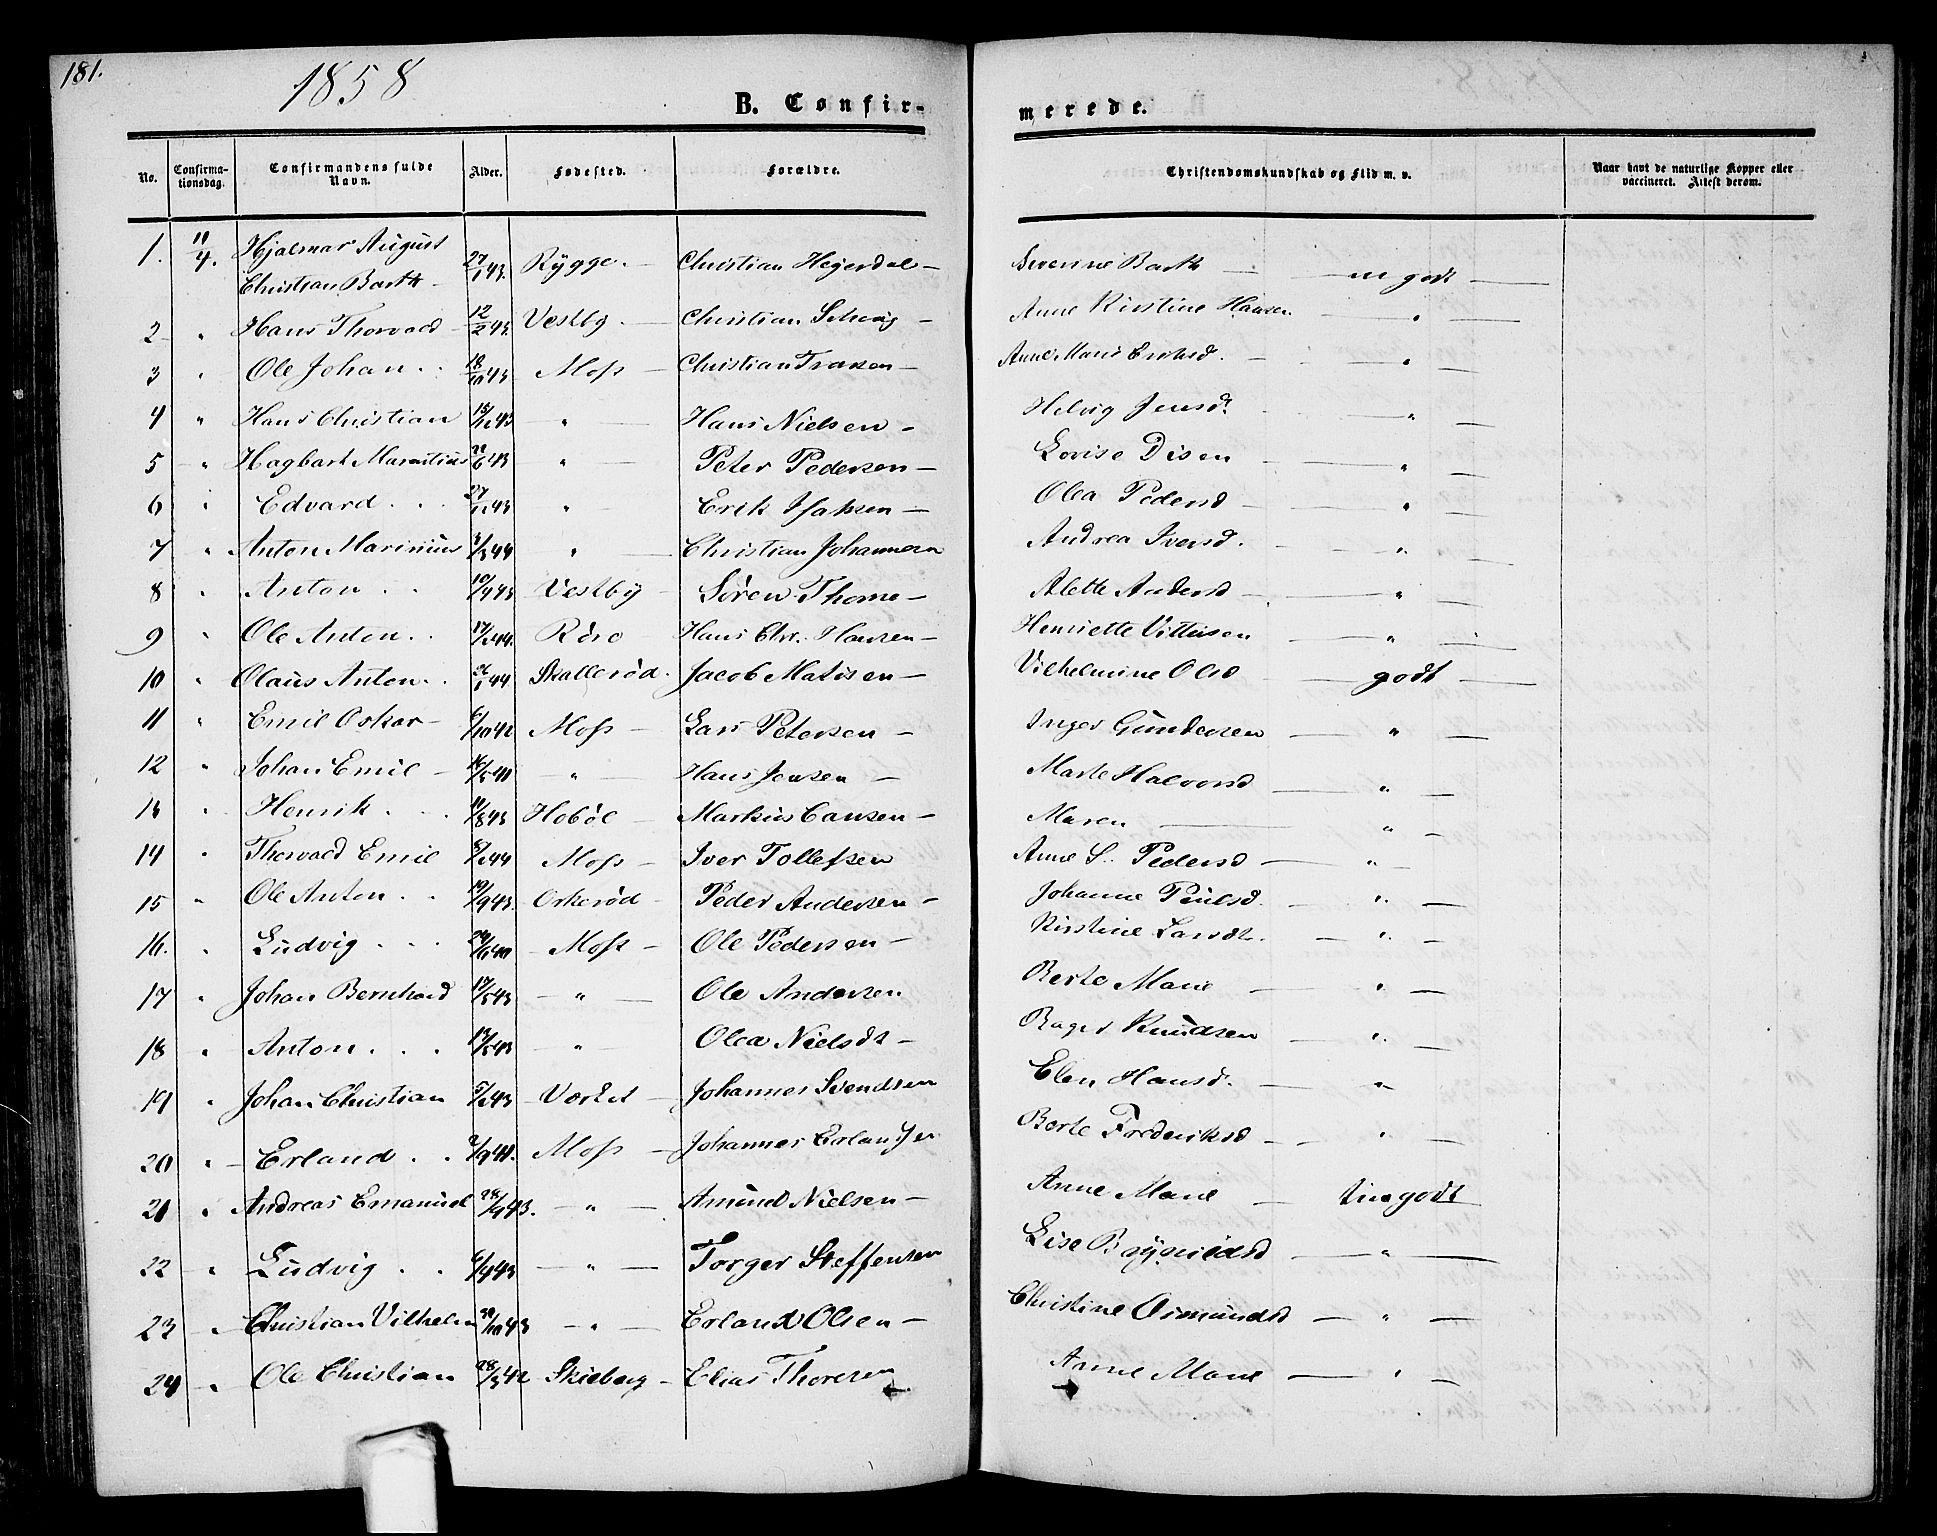 181.
1858
B. Confirmerede.
No. Confirmationsdag. Confirmandens fulde Navn. Alder. Fødested. Forældre. Christendomskundskab og Flid m. v. Naar havt de naturlige Kopper eller vaccineret. Attest derom.
1. 11/4. Hjalmar August Christian Barth - 27/1 43. Rygge. - Christian Hejerdal - Severine Barth - m godt -
2 " Hans Thorvald - 12/2 43. Vestby. - Christian - Anne Kirstine Hansen " -
3 " Ole Johan . . 18/10 43 Moss - Christian Transen - Anne Marie - " -
4 " Hans Christian 43 " - Hans Nielsen - Helvig Jensd. " -
5 " Hagbart Marentius 43 " - Peter Pedersen - Lovise Disen - " -
6 " Edvard . . 43 " - Erik Isaksen - Olea Pedersd - " -
7 " Anton Marinius 44 " - Christian Johannesen Andrea Iversd. - " -
8 " Anton . . 10/9 43 Vestby - Søren Thorne - Alette Andersd - " -
9 " Ole Anton . . 17/2 44. Hans Chr. Hansen - Henriette - " -
10 " Olaus Anton . . 26/1 44 Skallerød. Jacob Matisen - Vilhelmine Olsd - godt -
11 " Emil Oskar - 6/10 42 Moss - Lars Petersen - Inger Gundersen - " -
12 " Johan Emil - 16/5 41 - " - Hans Jensen - Marte Halvorsd - " -
13 " Henrik . . 11/8 43 Hobøl - Markus Hansen - Maren - " -
14 " Thorvald Emil 44 Moss - Iver Tollefsen Anne S. Pedersd - " -
15 " Ole Anton . . 19/9 43. Orkerød - Peder Andersen - Johanne Poulsd. - " -
16. " Ludvig . . . Moss - Ole Pedersen - Kirstine Larsdt. - " -
17 " Johan Bernhard 17/5 43 - " - Ole Andersen Berte Marie - " -
18 " Anton . . . 43 - " - Olea Nielsdt - Knudsen - " -
19 " Johan Christian 5/2 43 - - Johannes Svendsen Elen Hansd. - "
20 " - Erland . . Moss - Johannes Erlandsen Berte Frederiksd - " -
21 " Andreas Emanuel 43. - " - Amund Nielsen - Anne Marie - godt -
22 " Ludvig . . 6/9 43 - " - Torger Steffensen Lise - " -
23 - " Christian Vilhelm 43 - " - Erland Olsen - Christine Osmundsd - " -
24 - " Ole Christian 28/3 42 Skieberg - Elias Thoresen Anne Marie - " -